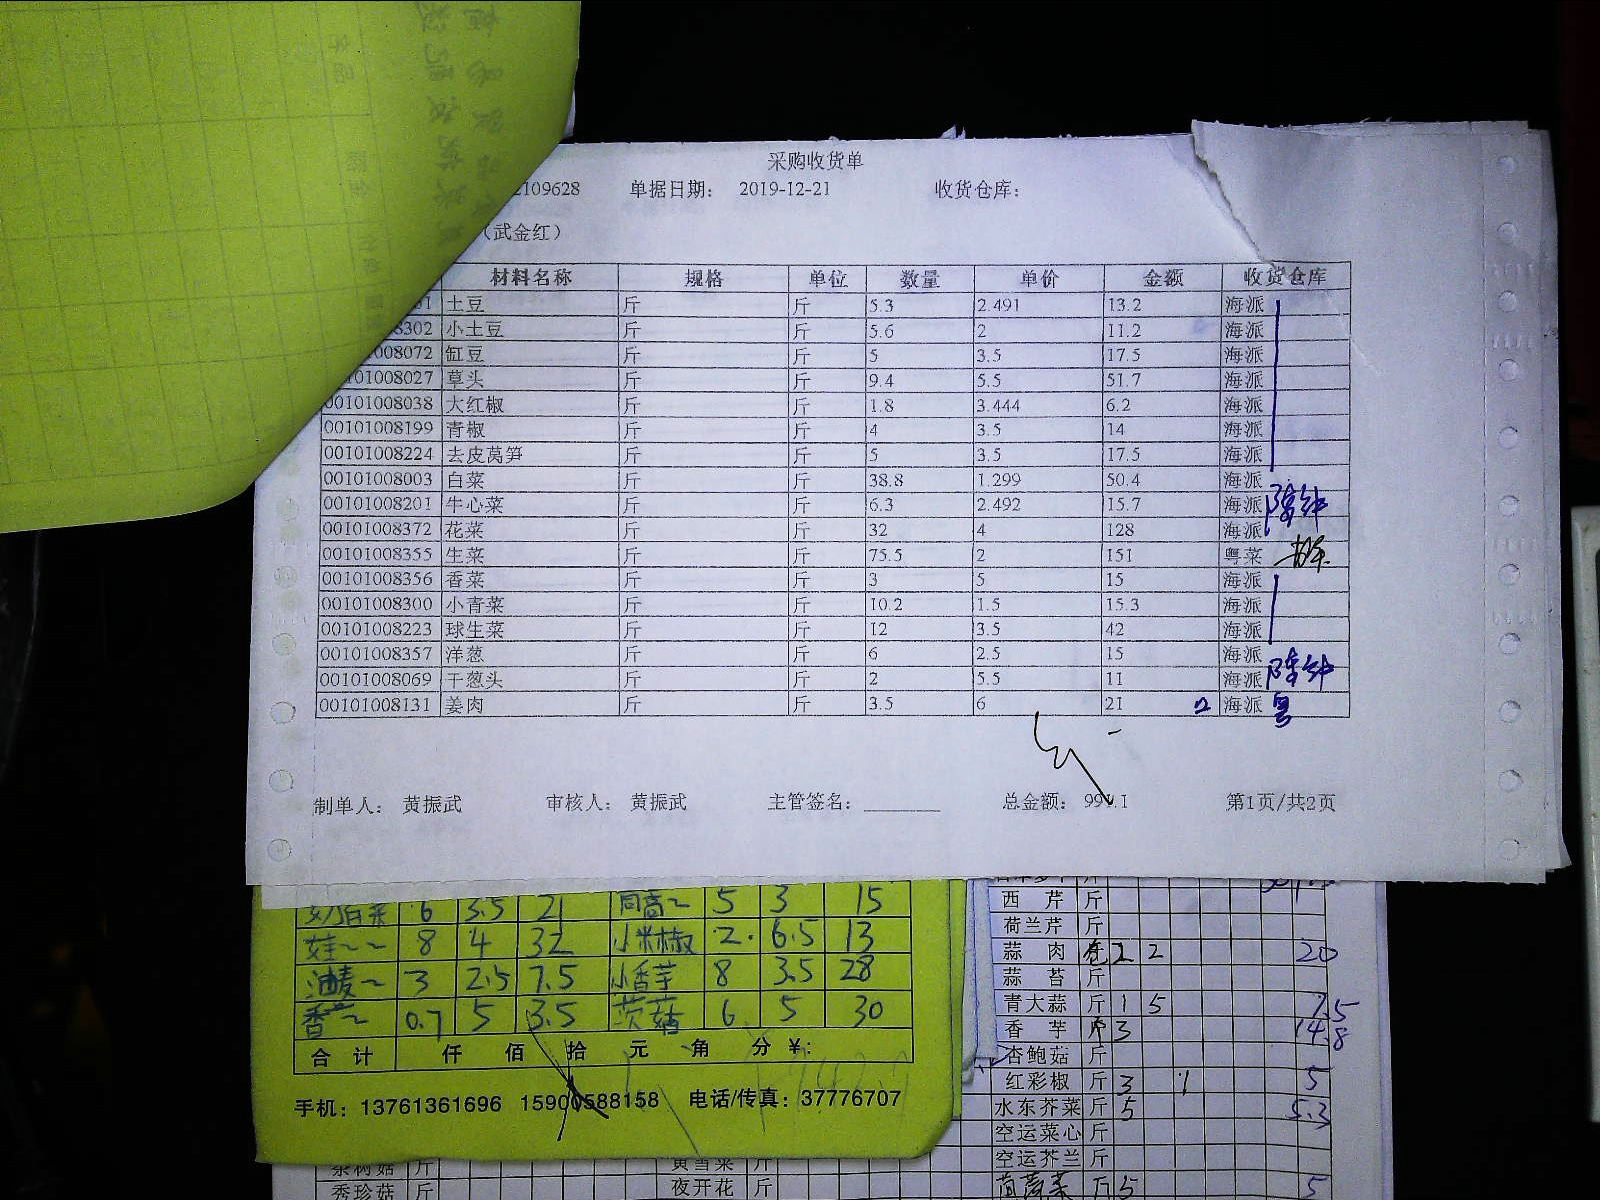 采购收货单
2109628 单据日期： 2019-12-21 收货仓库：
（武金红）
材料名称 规格 单位 数量 单价 金额 收货仓库
01 土豆 斤 斤 5.3 2.491 13.2 海派
8302 小土豆 斤 斤 5.6 2 11.2 海派
01008072 缸豆 斤 斤 5 3.5 17.5 海派
0101008027 草头 斤 斤 9.4 5.5 51.7 海派
00101008038 大红椒 斤 斤 1.8 3.444 6.2 海派
00101008199 青椒 斤 斤 4 3.5 14 海派
00101008224 去皮莴笋 斤 斤 5 3.5 17.5 海派
00101008003 白菜 斤 斤 38.8 1.299 50.4 海派
00101008201 牛心菜 斤 斤 6.3 2.492 15.7 海派
00101008372 花菜 斤 斤 32 4 128 海派
00101008355 生菜 斤 斤 75.5 2 151 粤菜
00101008356 香菜 斤 斤 3 5 15 海派
00101008300 小青菜 斤 斤 10.2 1.5 15.3 海派
00101008223 球生菜 斤 斤 12 3.5 42 海派
00101008357 洋葱 斤 斤 6 2.5 15 海派
00101008069 干葱头 斤 斤 2 5.5 11 海派
00101008131 姜肉 斤 斤 3.5 6 21 2 海派 粤
制单人： 黄振武 审核人： 黄振武 主管签名：________ 总金额： 991.1 第1页/共2页
6 3.5 21 茼蒿~ 5 3 15
娃~~ 8 4 32 小米椒 2. 6.5 13
油麦~ 3 2.5 7.5 小香芋 8 3.5 28
香~ 0.7 5 3.5 茨菇 6 5 30
合计 仟 佰 拾 元 角 分 ¥:
手机：13761361696 15900588158 电话/传真：37776707
西芹 斤
荷兰芹 斤
蒜肉 2 2 20
蒜苔 斤
青大蒜 斤 1 5 7.5
香芋 斤 3 14.8
杏鲍菇 斤
红彩椒 斤 3 1 5
水东芥菜 斤 5 5.3
空运菜心 斤
空运芥兰 斤
茶树菇 斤 黄雪菜 斤
秀珍菇 斤 夜开花 斤 5 5